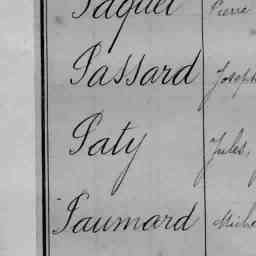 Paquet Pierre
Passard Joseph
Paty Jules,
Paumard Miche